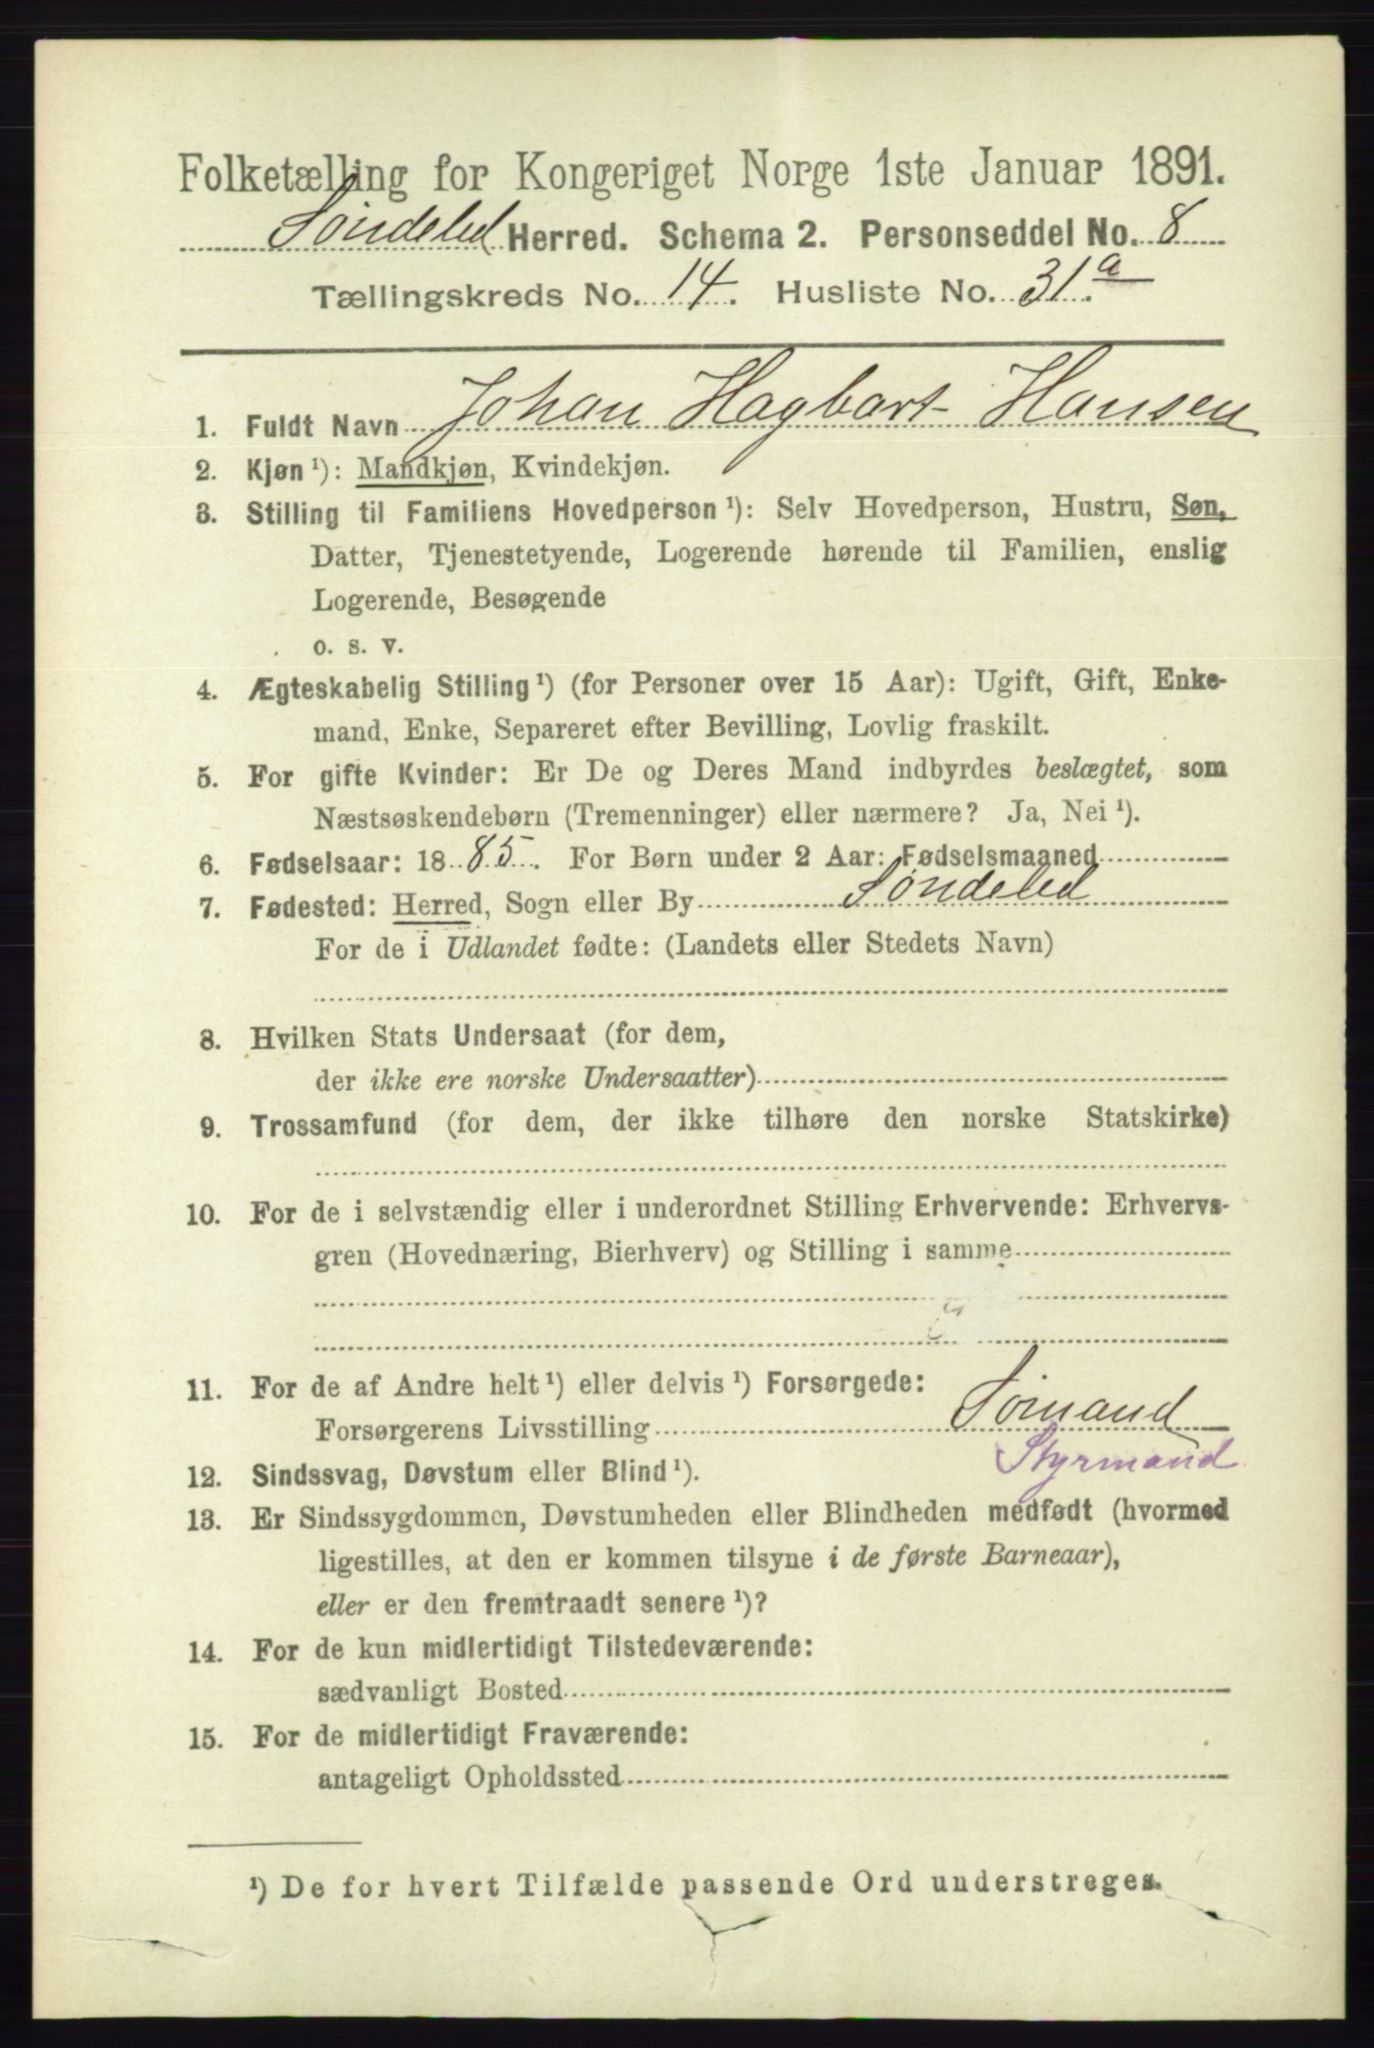 Folketælling for Kongeriget Norge 1ste Januar 1891.
Søndeled Herred. Schema 2. Personseddel No. 8
Tællingskreds No. 14. Husliste No. 31.a
1. Fuldt Navn Johan Hagbart Hansen
2. Kjøn ¹): Mandkjøn, Kvindekjøn.
3. Stilling til Familiens Hovedperson ¹): Selv Hovedperson, Hustru, Søn,
Datter, Tjenestetyende, Logerende hørende til Familien, enslig
Logerende, Besøgende
o. s. v.
4. Ægteskabelig Stilling ¹) (for Personer over 15 Aar): Ugift, Gift, Enke-
mand, Enke, Separeret efter Bevilling, Lovlig fraskilt.
5. For gifte Kvinder: Er De og Deres Mand indbyrdes beslægtet, som
Næstsøskendebørn (Tremenninger) eller nærmere? Ja, Nei ¹).
6. Fødselsaar: 1885. For Børn under 2 Aar: Fødselsmaaned
7. Fødested: Herred, Sogn eller By Søndeled
For de i Udlandet fødte: (Landets eller Stedets Navn)
8. Hvilken Stats Undersaat (for dem,
der ikke ere norske Undersaatter)
9. Trossamfund (for dem, der ikke tilhøre den norske Statskirke)
10. For de i selvstændig eller i underordnet Stilling Erhvervende: Erhvervs-
gren (Hovednæring, Bierhverv) og Stilling i samme
11. For de af Andre helt ¹) eller delvis ¹) Forsørgede:
Forsørgerens Livsstilling Sømand
Styrmand
12. Sindssvag, Døvstum eller Blind ¹).
13. Er Sindssygdommen, Døvstumheden eller Blindheden medfødt (hvormed
ligestilles, at den er kommen tilsyne i de første Barneaar),
eller er den fremtraadt senere ¹)?
14. For de kun midlertidigt Tilstedeværende:
sædvanligt Bosted
15. For de midlertidigt Fraværende:
antageligt Opholdssted
¹) De for hvert Tilfælde passende Ord understreges.